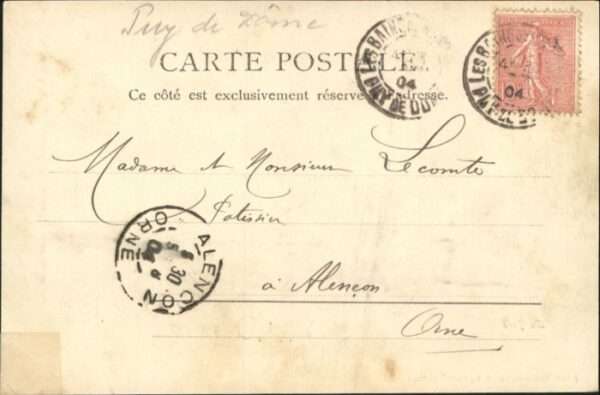 Puy de Dôme
CARTE POSTALE
Ce côté est exclusivement réservé adresse.
LES BAINS
04
PUY DE DOME
LES BA
04
Madame et Monsieur Lecomte
Patissier
à Alençon
Orne
ALENCON
ORNE
30
04